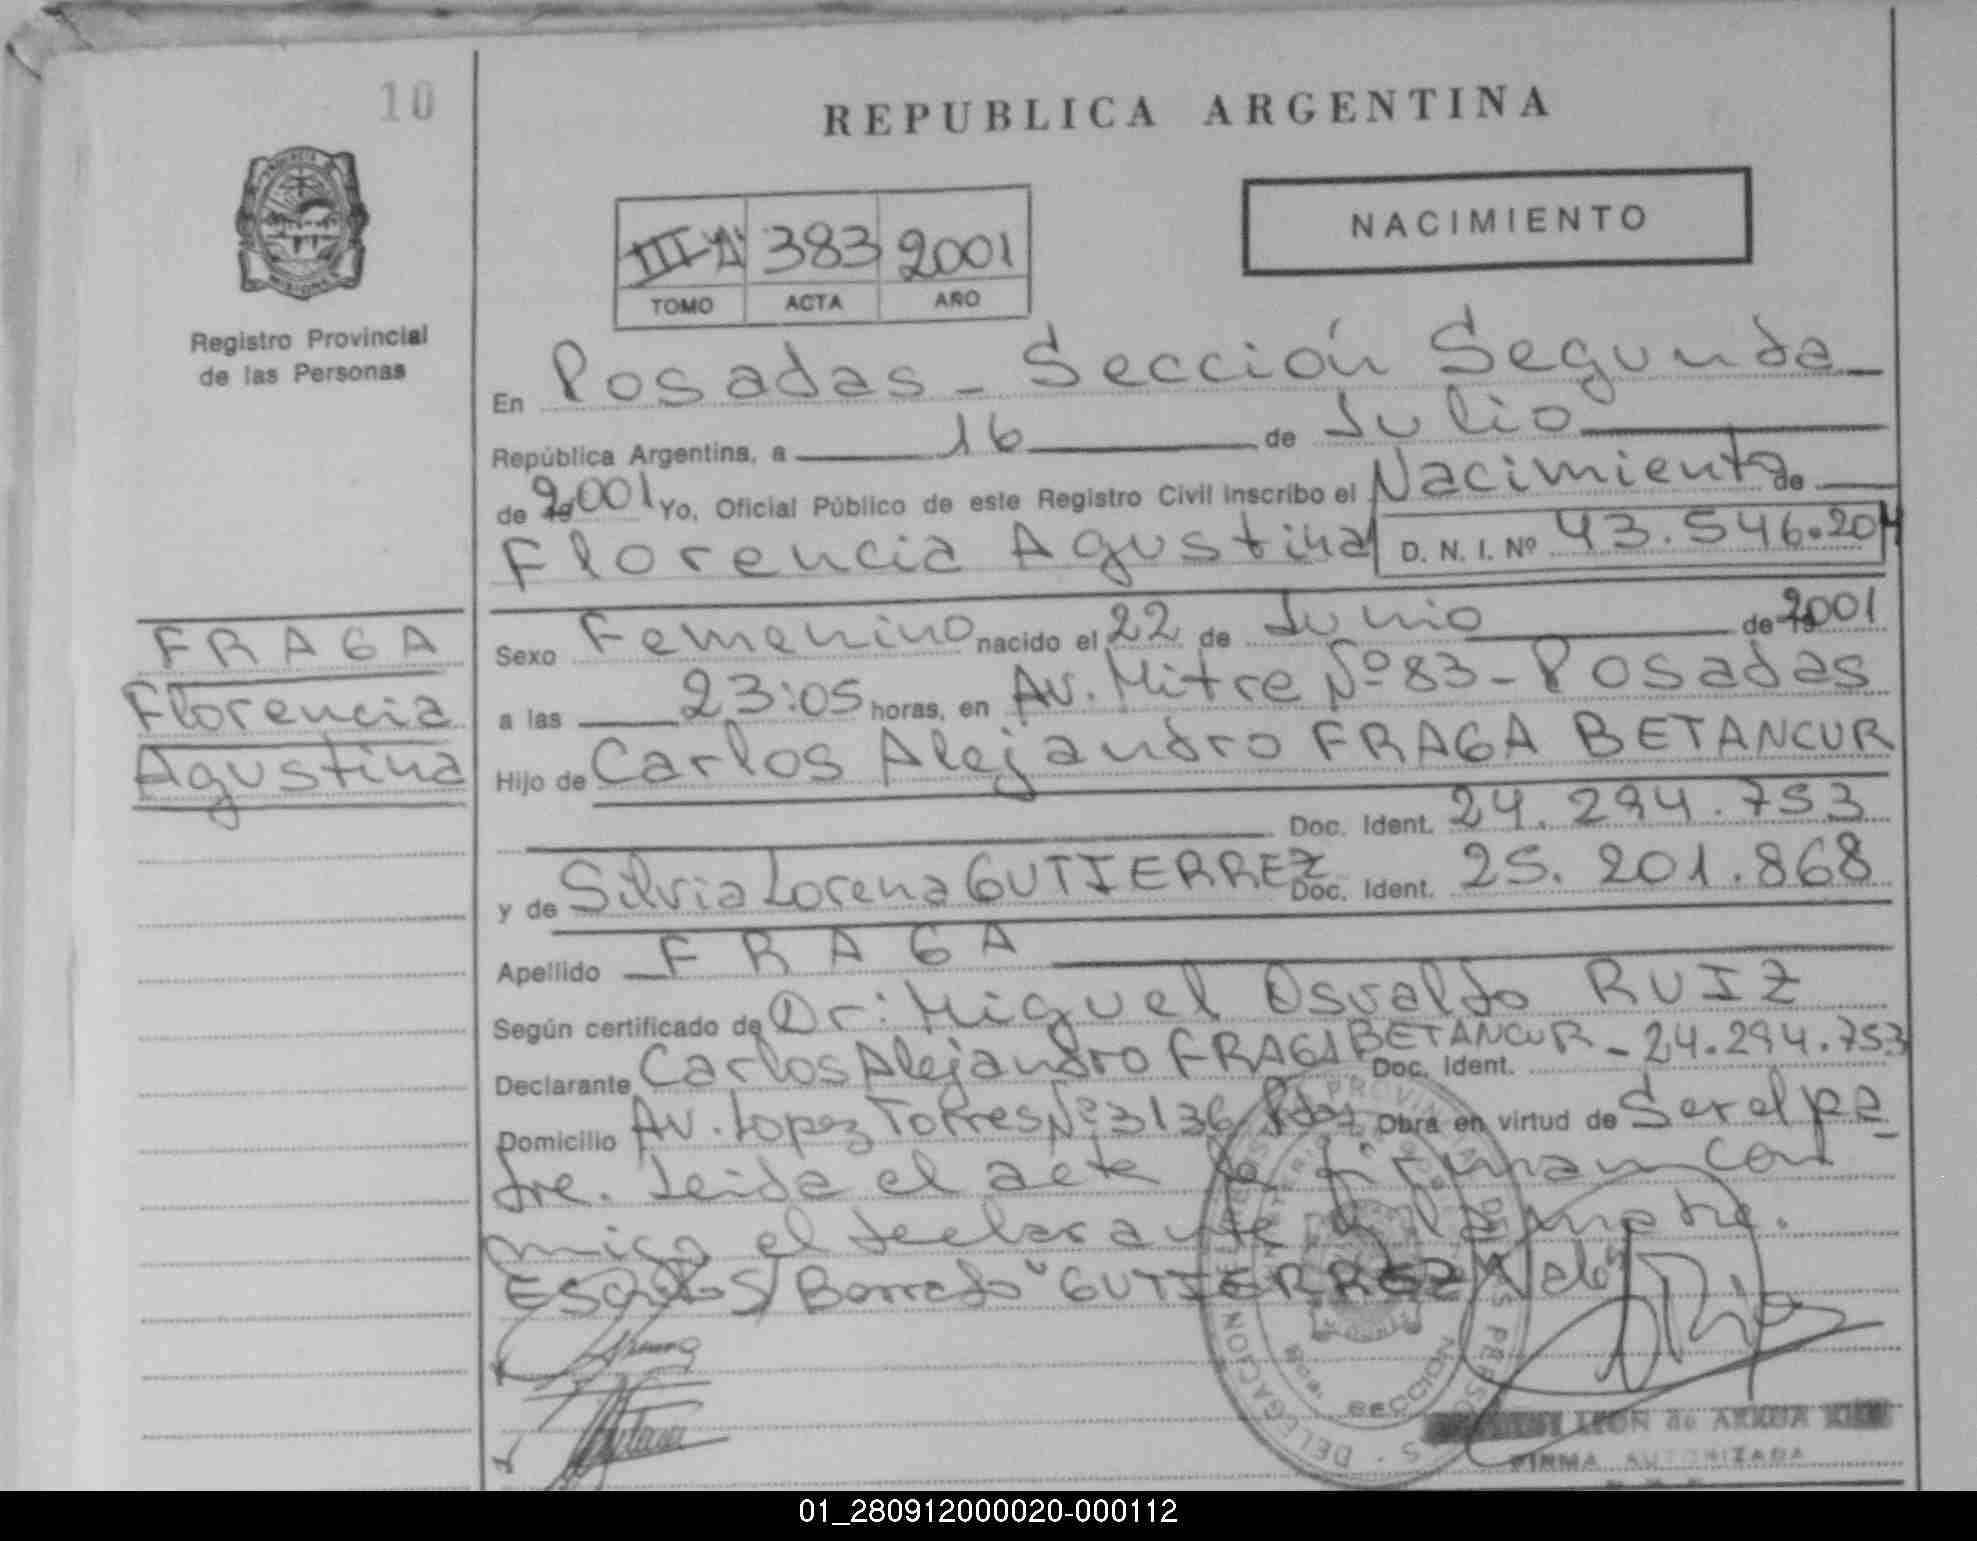 10
REPUBLICA ARGENTINA
NACIMIENTO
383 2001
TOMO ACTA AÑO
Registro Provincial
de las Personas
En Posadas - Sección Segunda
República Argentina, a 16 de Julio
de 2001 Yo, Oficial Público de este Registro Civil inscribo el Nacimiento de
Florencia Agustina D. N. I. Nº 43.546.204
FRAGA
Florencia
Agustina
Sexo Femenino nacido el 22 de Junio de 2001
a las 23:05 horas, en Av. Mitre Nº 83 - Posadas
Hijo de Carlos Alejandro FRAGA BETANCUR
Doc. Ident. 24.294.753
y de Silvia Lorena GUTIERREZ Doc. Ident. 25.201.868
Apellido FRAGA
Según certificado de Dr: Miguel Osvaldo RUIZ
Declarante Carlos Alejandro FRAGA BETANCUR - 24.294.753
Doc. Ident.
Domicilio Av. Lopez Torres Nº 3136 Pdas Obra en virtud de Ser el pa
dre. Leida el acta la firman con
migo el declarante y la madre.
Escrito S/ Borrado "GUTIERREZ" Vale
SECCION
LEON de
FIRMA AUTORIZADA
01_280912000020-000112